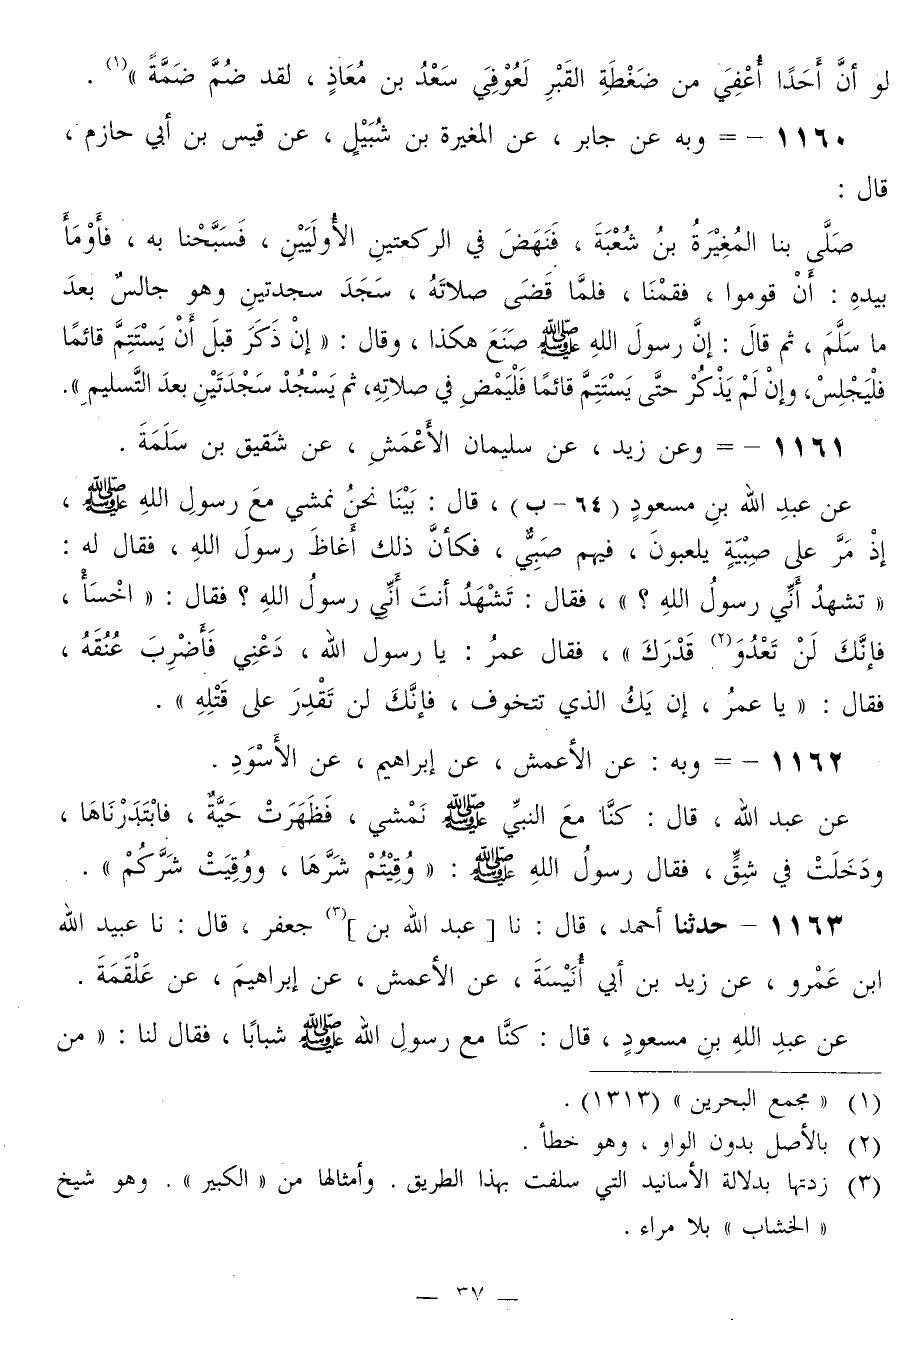 لو أنَّ أَحَدًا أُعْفِيَ من ضَغْطَةِ القَبْرِ لَعُوْفِيَ سَعْدُ بن مُعَاذٍ ، لقد ضُمَّ ضَمَّةً »(١) .
١١٦٠ – = وبه عن جابر ، عن المغيرة بن شُبَيْلٍ ، عن قيس بن أبي حازم ،
قال :
صَلَّى بنا المُغِيْرَةُ بنُ شُعْبَةَ ، فَنَهَضَ في الركعتينِ الأُولَيَيْنِ ، فَسَبَّحْنا به ، فأَوْمَأَ
بيدهِ : أَنْ قوموا ، فقمْنَا ، فلمَّا قَضَى صلاتَهُ ، سَجَدَ سجدتينِ وهو جالسٌ بعدَ
ما سَلَّمَ ، ثم قالَ : إنَّ رسولَ اللهِ ﷺ صنَعَ هكذا ، وقال : « إنْ ذَكَرَ قبلَ أَنْ يَسْتَتِمَّ قائمًا
فلْيَجْلِسْ، وإنْ لَمْ يَذْكُرْ حتَّى يَسْتَتِمَّ قائمًا فَلْيَمْضِ في صلاتِهِ، ثم يَسْجُدْ سَجْدَتَيْنِ بعدَ التَّسليمِ ».
١١٦١ – = وعن زيد ، عن سليمان الأَعْمَشِ ، عن شَقيق بن سَلَمَةَ .
عن عبدِ الله بنِ مسعودٍ ( ٦٤ – ب ) ، قال : بَيْنَا نحنُ نمشي معَ رسولِ اللهِ ﷺ ،
إذْ مَرَّ على صِبْيَةٍ يلعبونَ ، فيهم صَبِيٌّ ، فكأنَّ ذلك أغاظَ رسولَ اللهِ ، فقال له :
« تشهدُ أَنِّي رسولُ اللهِ ؟ » ، فقال : تَشْهَدُ أنتَ أَنِّي رسولُ اللهِ ؟ فقال : « اخْسَأْ ،
فإنَّكَ لَنْ تَعْدُوَ(٢) قَدْرَكَ » ، فقال عمرُ : يا رسول الله ، دَعْنِي فَأَضْرِبَ عُنُقَهُ ،
فقال : « يا عمرُ ، إن يَكُ الذي تتخوف ، فإنَّكَ لن تَقْدِرَ على قَتْلِهِ » .
١١٦٢ – = وبه : عن الأعمش ، عن إبراهيم ، عن الأَسْوَدِ .
عن عبد الله ، قال : كنَّا معَ النبيِّ ﷺ نَمْشي ، فَظَهَرَتْ حَيَّةٌ ، فابْتَدَرْنَاهَا ،
ودَخَلَتْ في شِقٍّ ، فقال رسولُ اللهِ ﷺ : « وُقِيْتُمْ شرَّهَا ، ووُقِيَتْ شرَّكُمْ » .
١١٦٣ – حدثنا أحمد ، قال : نا [ عبد الله بن ](٣) جعفر ، قال : نا عبيد الله
ابن عَمْرو ، عن زيد بن أبي أُنَيْسَةَ ، عن الأعمش ، عن إبراهيمَ ، عن عَلْقَمَةَ .
عن عبدِ اللهِ بنِ مسعودٍ ، قال : كنَّا مع رسولِ الله ﷺ شبابًا ، فقال لنا : « من
(١) « مجمع البحرين » (١٣١٣) .
(٢) بالأصل بدون الواو ، وهو خطأ .
(٣) زدتها بدلالة الأسانيد التي سلفت بهذا الطريق . وأمثالها من « الكبير » . وهو شيخ
« الخشاب » بلا مراء .
— ٣٧ —